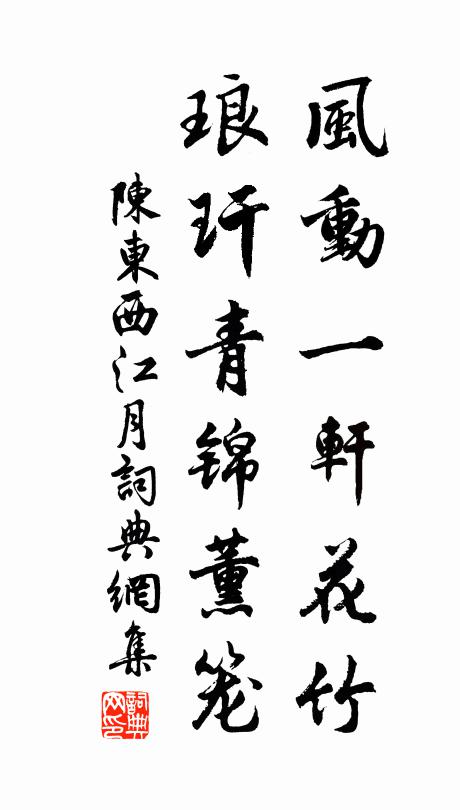 風動一軒花竹
琅玕青锦薰笼
陳東西江月詞典網集
詞典网印